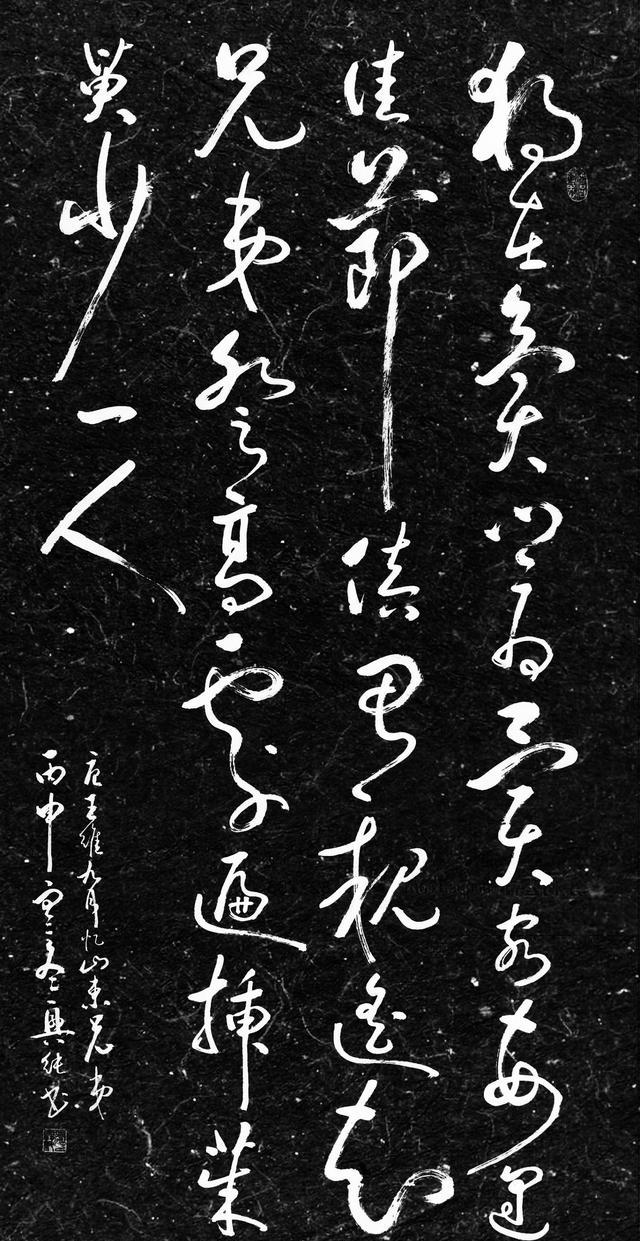 獨在異鄉為異客每逢
佳節倍思親遙知
兄弟登高處遍插茱
萸少一人
唐王維九月忆山東兄弟
丙申